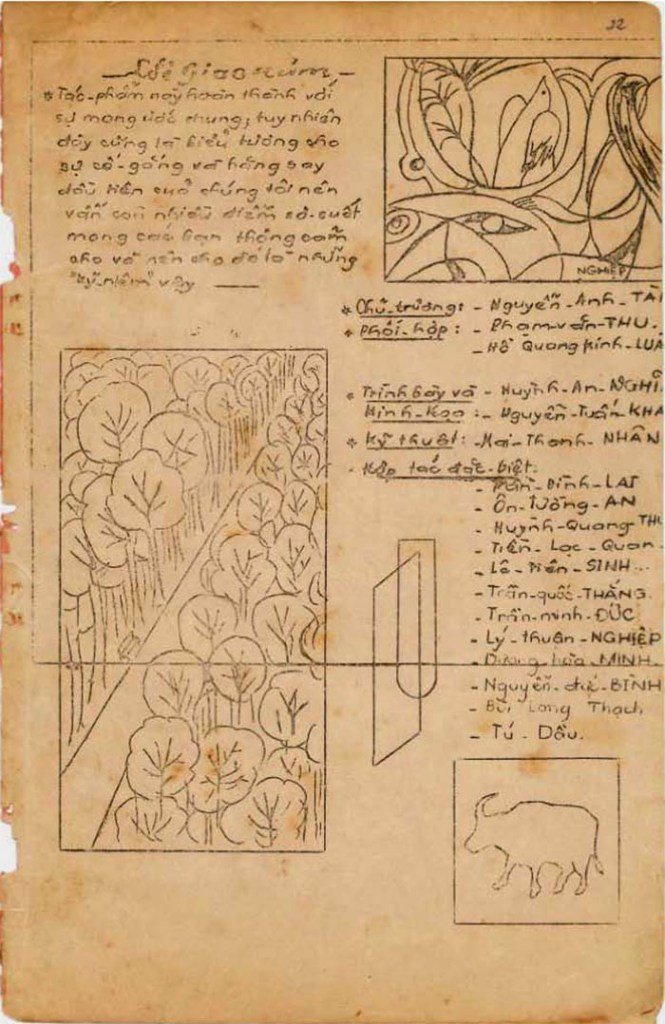 32
* Tác-phẩm này hoàn thành với
sự mong ước chung, tuy nhiên
đây cũng là biểu tượng cho
sự cố-gắng và hăng say
đầu tiên của chúng tôi nên
vẫn còn nhiều điểm sơ-suất
mong các bạn thông cảm
cho và nên cho đó là những
"kỷ-niệm" vậy
NGHIỆP
* Chủ-trương: - Nguyễn-Anh-TÀI
* Phối-hợp: - Phạm-văn-THU
- Hồ Quang Kính-LUA
* Trình bày và - Huỳnh-An-NGHĨ
Hình-Họa: - Nguyễn-Tuấn-KHA
* Kỹ thuật: - Mai-Thanh-NHÂN
- Hợp tác đặc-biệt:
- Trần-Đình-LAI
- Ôn-Tường-AN
- Huỳnh-Quang THU
- Tiền-Lạc-Quan
- Lê-Tiến-SINH...
- Trần-quốc-THẮNG
- Trần-minh-ĐỨC
- Lý-thuận-NGHIỆP
- Dương-hứa-MINH
- Nguyễn-đức-BÌNH
- Bùi Long Thạch
- Tú-Dầu.